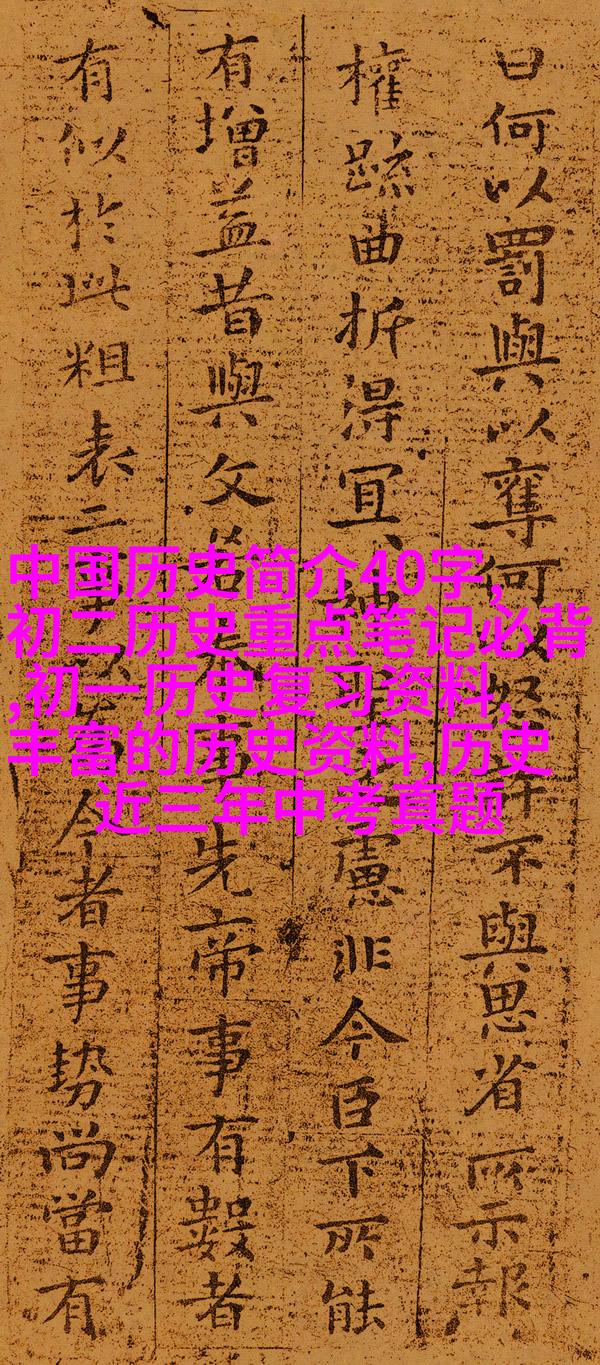 中国历史简介40字,
初二历史重点笔记必背
,初一历史复习资料,
丰富的历史资料,历史
近三年中考真题
曰何以罰與以奪何以怒許不與思省所示報
權疏曲折得宜神慮非今臣下所能
有增益昔與文若奉事先帝事有數者
有似於此粗表二事以為今者事勢尚當有